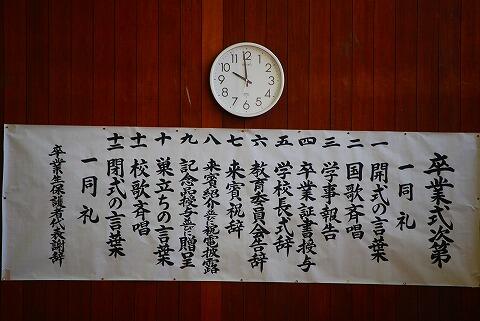 卒業式次第
一同礼
一 開式の言葉
二 国歌斉唱
三 学事報告
四 卒業証書授与
五 学校長式辞
六 教育委員会告辞
七 来賓祝辞
八 来賓紹介並に祝電披露
九 記念品授与並に贈呈
十 巣立ちの言葉
十一 校歌斉唱
十二 閉式の言葉
一同礼
卒業生保護者代表謝辞
12
1
2
3
4
5
6
7
8
9
10
11